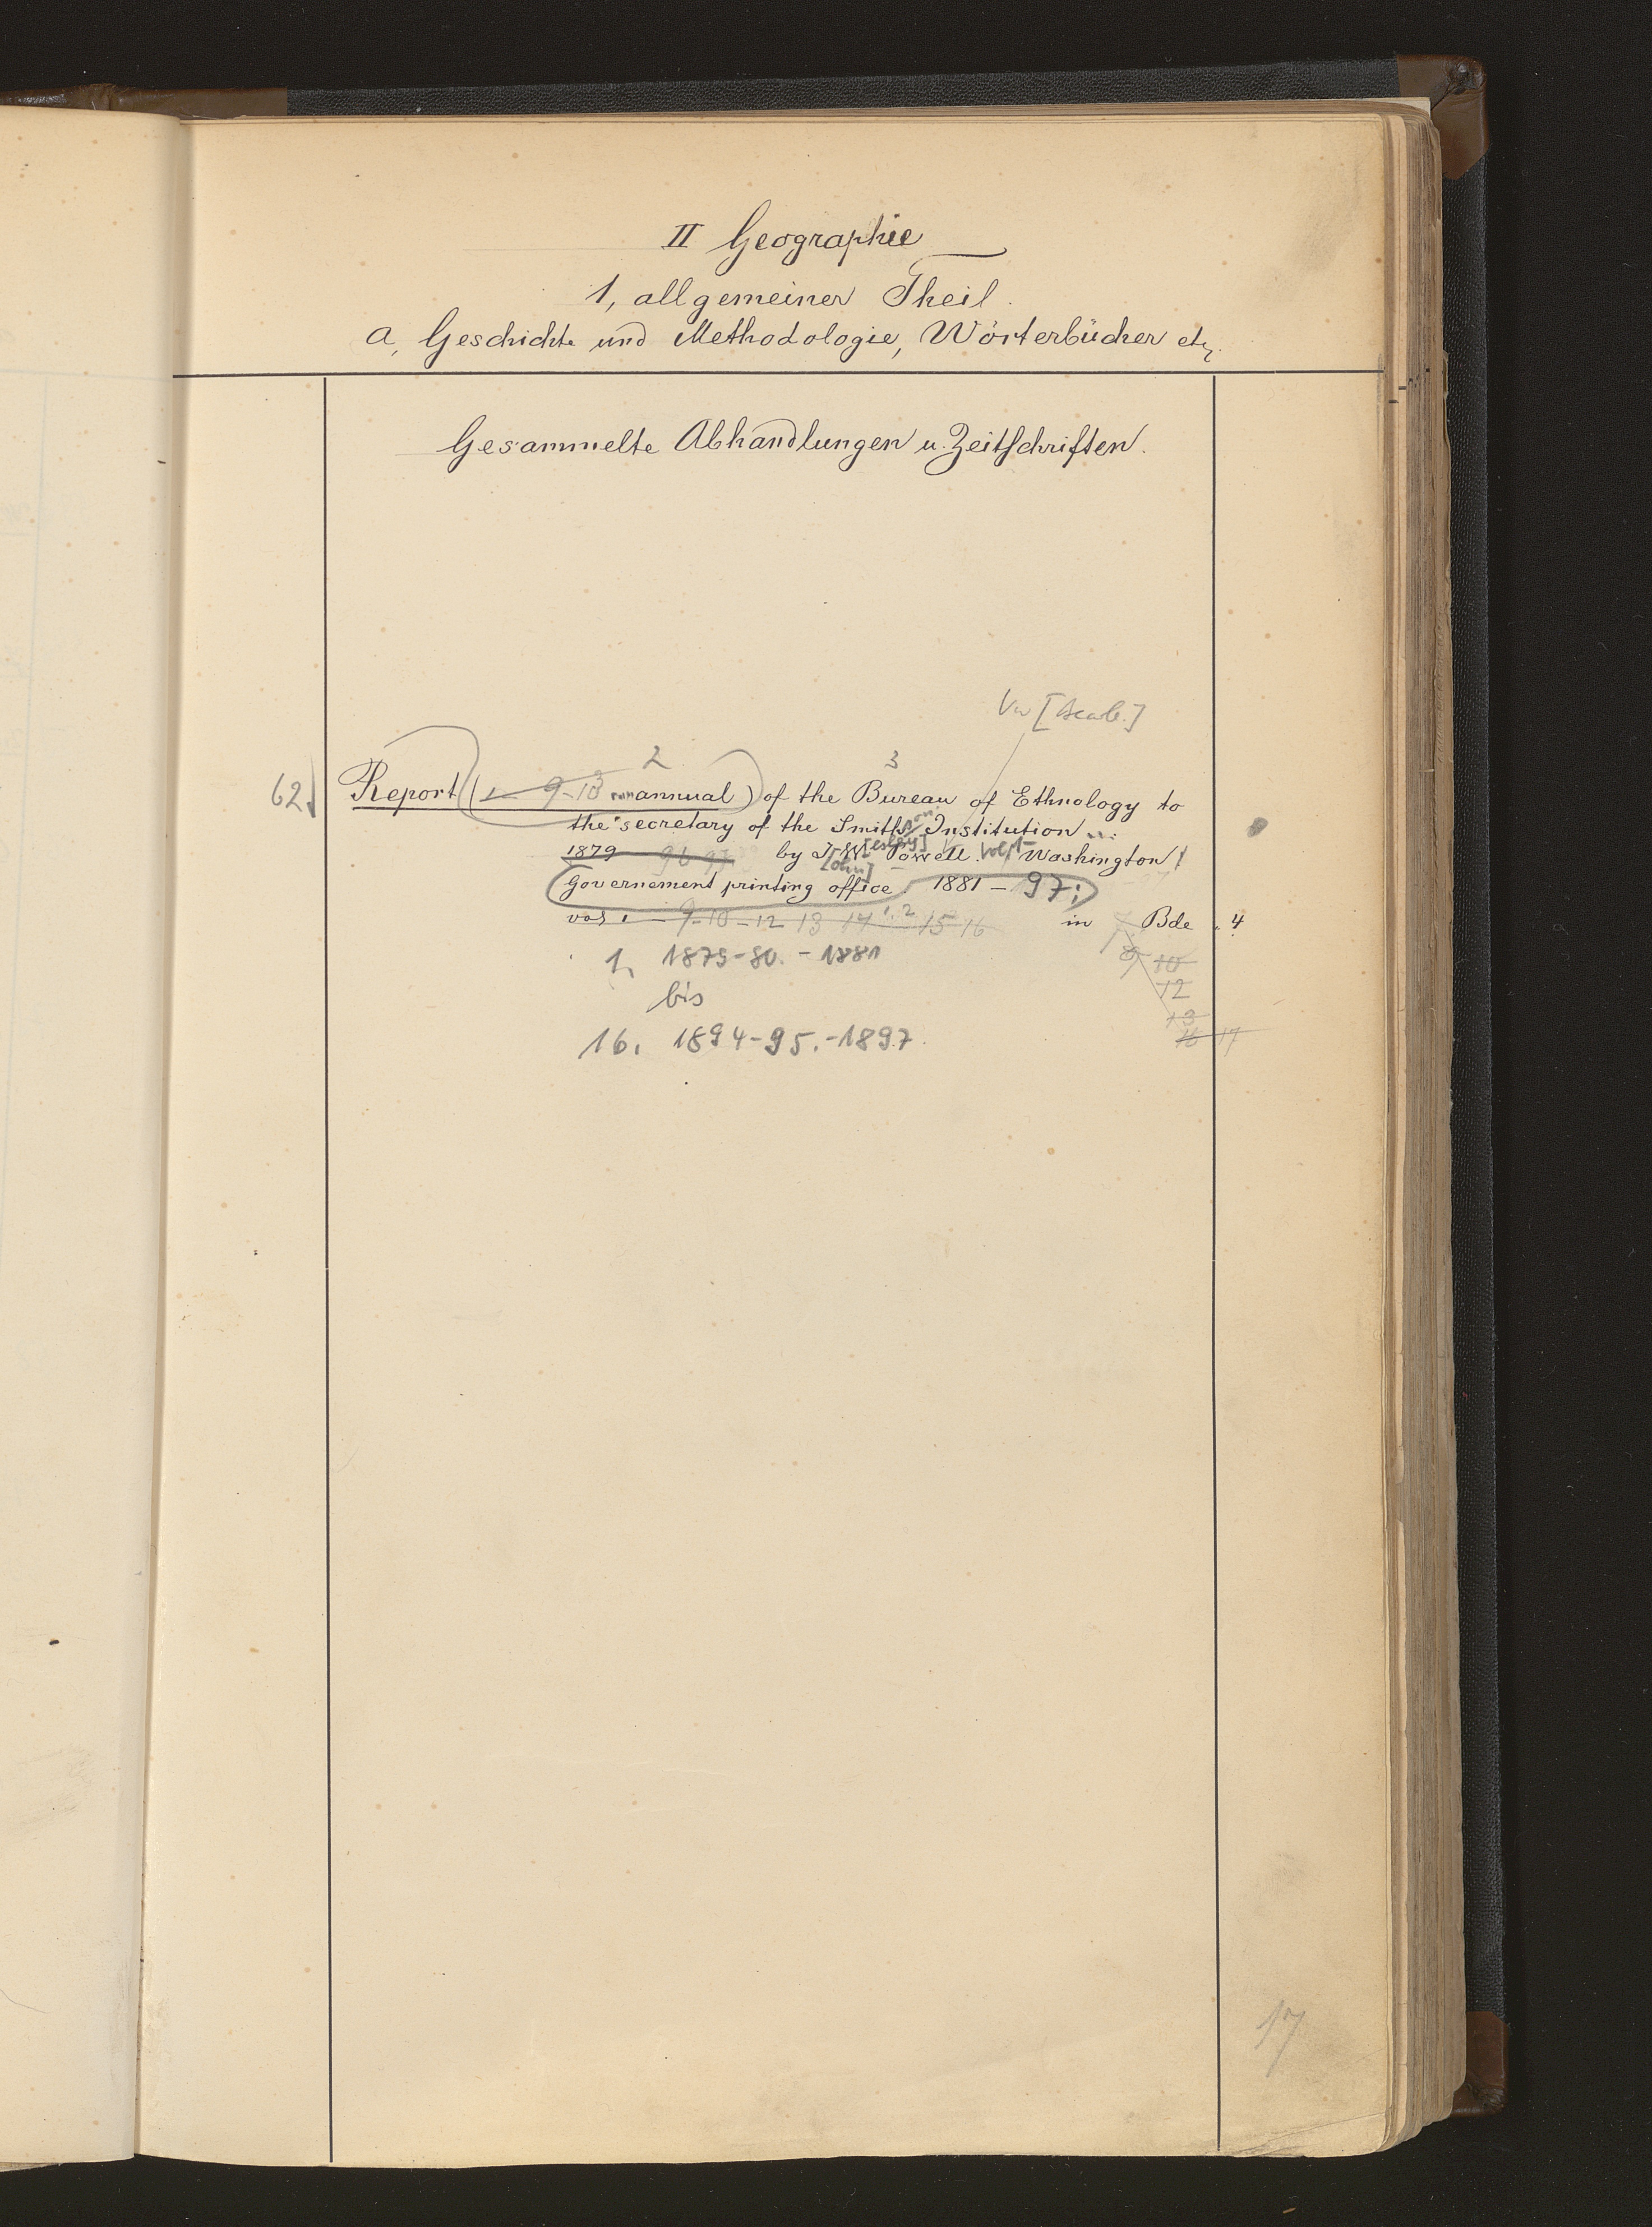 II Geographie
1, allgemeiner Theil.
a, Geschichte und Methodologie, Wörterbücher etz.
Gesammelte Abhandlungen u. Zeitschriften.
2 3
62 Report (1 – 9-13 annual) of the Bureau of Ethnology to
the secretary of the Smithson Institution ...
1879 – 96 97 by J[ohn] W[esley] Powell. Vol. 1– Washington
Governement printing office. 1881 – 97;
vol 1 – 9-10-12 13 14 1.2 15 16 in 7 Bde 4
1, 1879-80. - 1881
8 10
bis
12
13
16. 1894-95. - 1897.
16 17
17